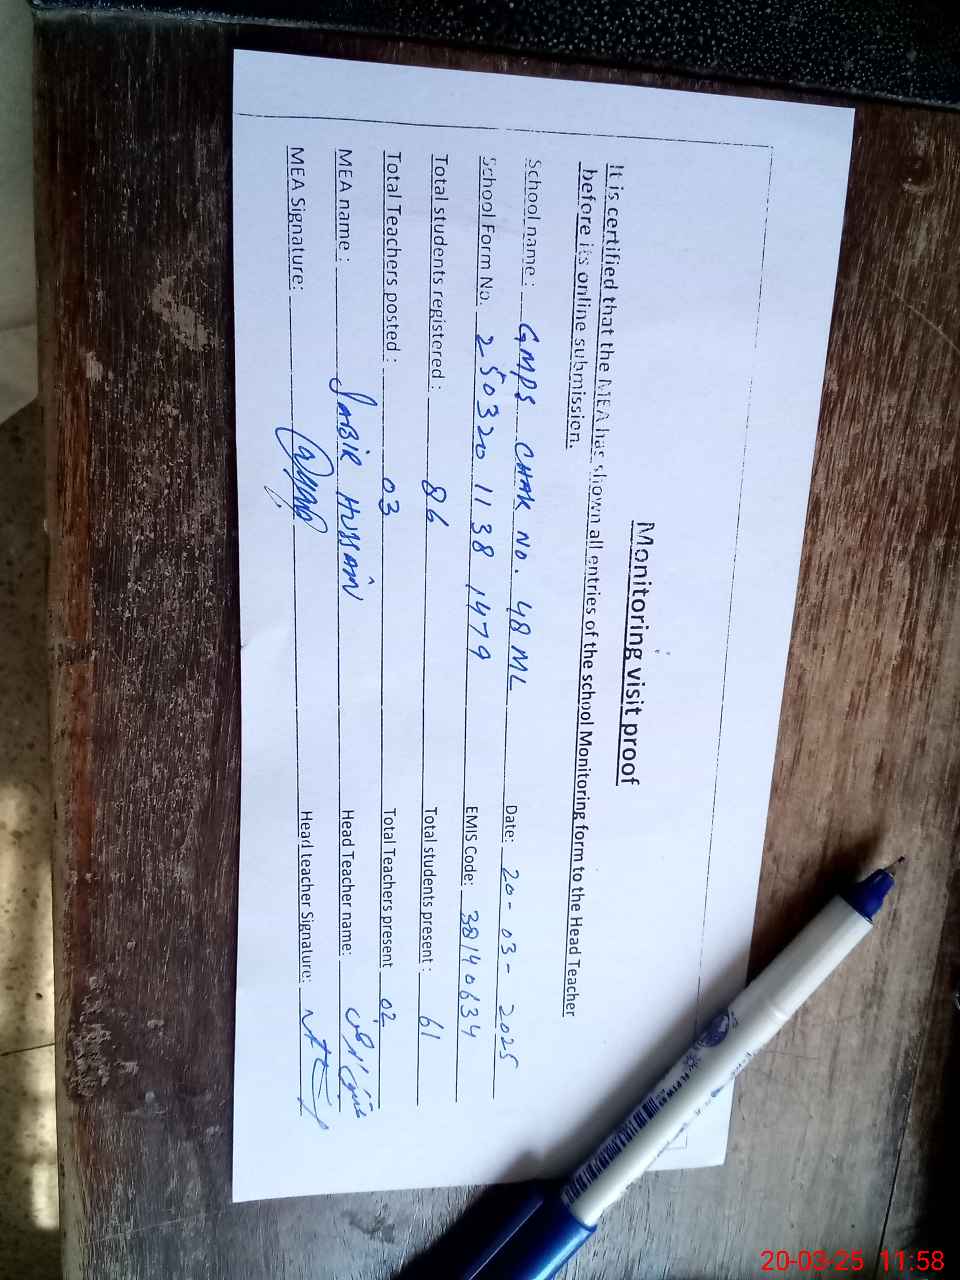 Monitoring visit proof
It is certified that the MEA has shown all entries of the school Monitoring form to the Head Teacher
before its online submission.
School name: GMPS CHAK NO. 48 ML Date: 20-03-2025
School Form No. 250320 1138 1479 EMIS Code: 38140634
Total students registered: 86 Total students present: 61
Total Teachers posted: 03 Total Teachers present 02
MEA name: SABIR HUSSAIN Head Teacher name:
MEA Signature: Head teacher Signature:
20-03-25 11:58